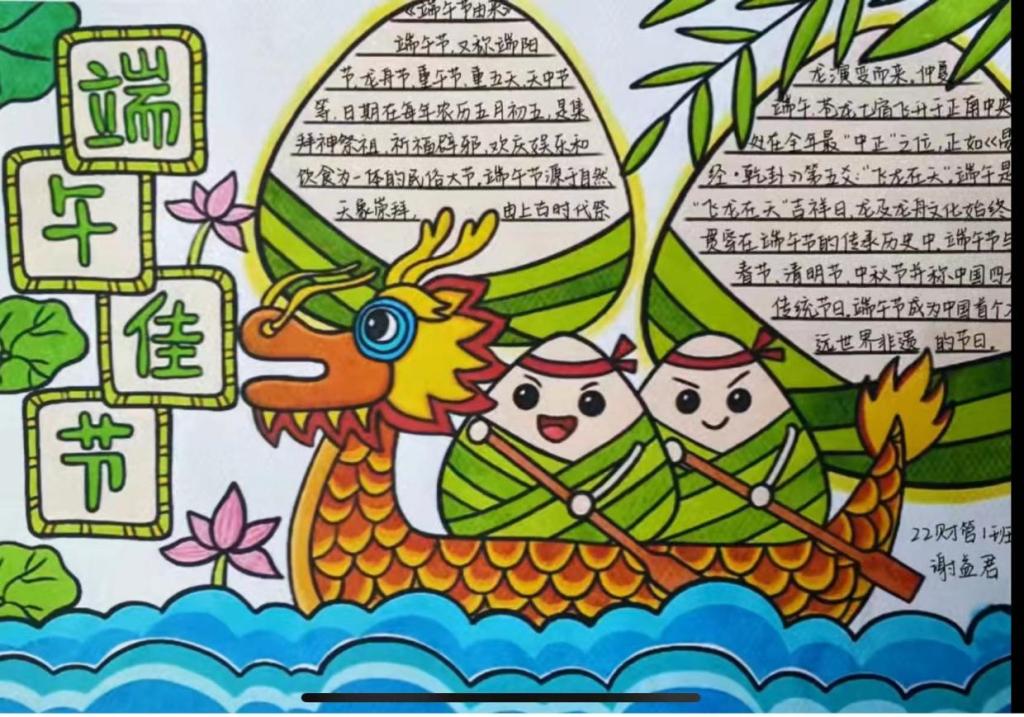 端
午
佳
节
《端午节由来》
端午节，又称端阳
节、龙舟节、重午节、重五天、天中节
等，日期在每年农历五月初五，是集
拜神祭祖、祈福辟邪、欢庆娱乐和
饮食为一体的民俗大节，端午节源于自然
天象崇拜， 由上古时代祭
龙演变而来，仲夏
端午，苍龙七宿飞升于正南中央
处在全年最“中正”之位，正如《易
经·乾卦》第五爻：“飞龙在天”，端午是
“飞龙在天”吉祥日，龙及龙舟文化始终
贯穿在端午节的传承历史中，端午节与
春节、清明节、中秋节并称中国四大
传统节日，端午节成为中国首个
世界非遗 的节日。
22财管1班
谢益君